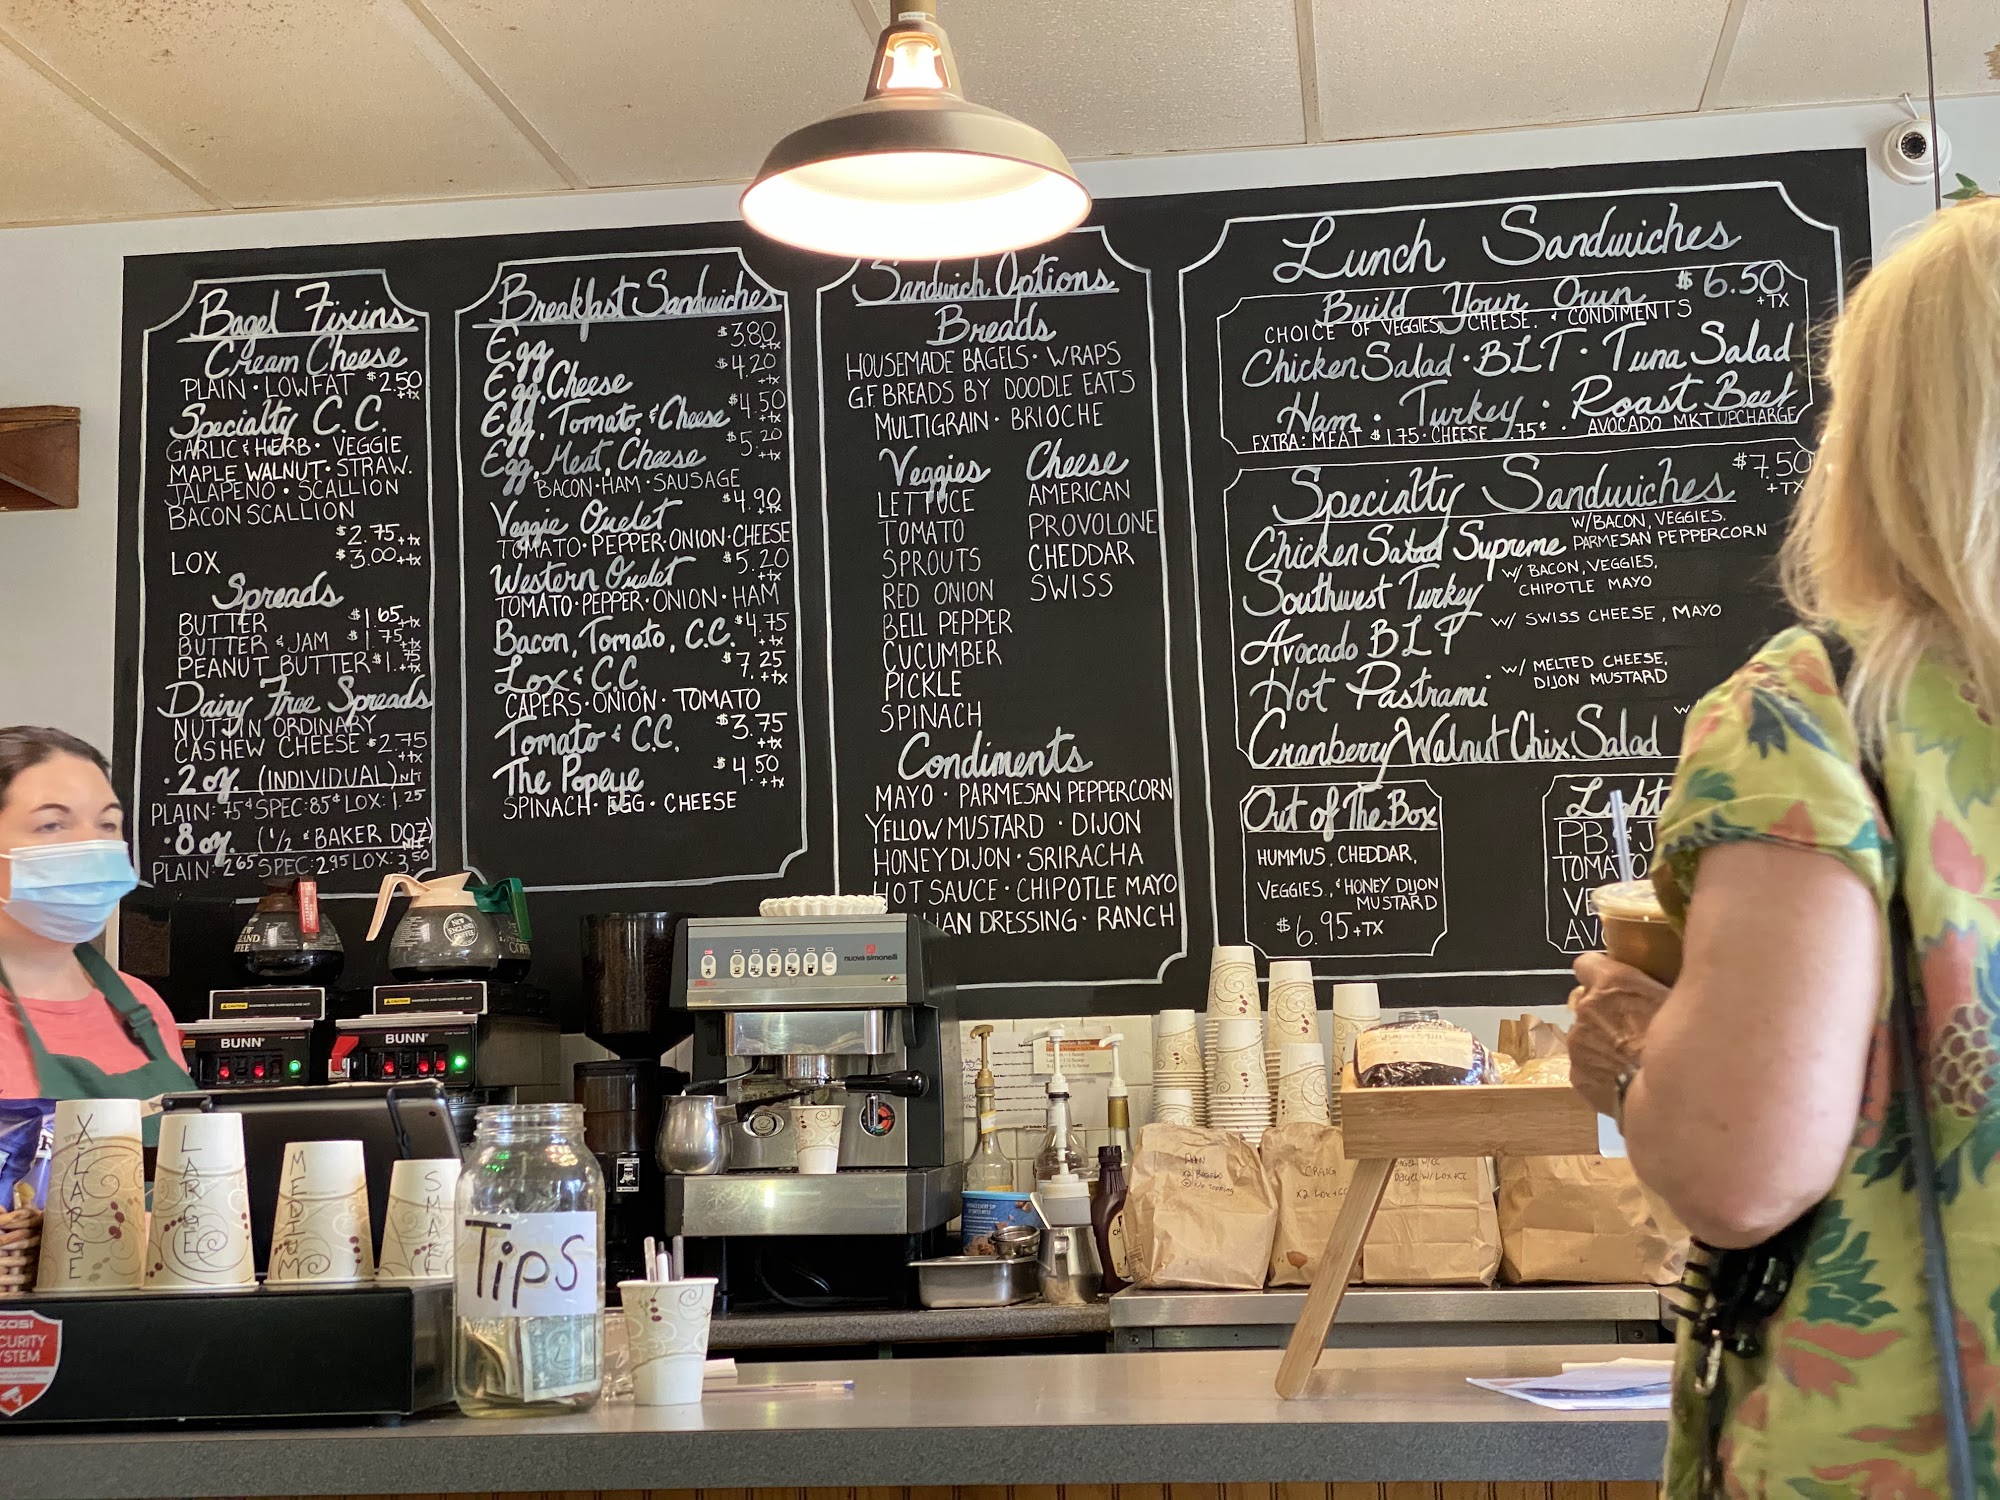 Bagel Fixins
Cream Cheese
PLAIN · LOWFAT $2.50 +tx
Specialty C.C.
GARLIC & HERB · VEGGIE
MAPLE WALNUT · STRAW.
JALAPENO · SCALLION
BACON SCALLION
$2.75 +tx
LOX $3.00 +tx
Spreads
BUTTER $1.65 +tx
BUTTER & JAM $1.75 +tx
PEANUT BUTTER $1.75 +tx
Dairy Free Spreads
NUTJIN ORDINARY
CASHEW CHEESE $2.75 +tx
· 2 oz. (INDIVIDUAL) NT
PLAIN: 75¢ SPEC: 85¢ LOX: 1.25
· 8 oz. (1/2 & BAKER DOZ)
PLAIN: 2.65 SPEC: 2.95 LOX: 3.50
Breakfast Sandwiches
Egg $3.80 +tx
Egg, Cheese $4.20 +tx
Egg, Tomato, & Cheese $4.50 +tx
Egg, Meat, Cheese $5.20 +tx
BACON · HAM · SAUSAGE
Veggie Omelet $4.90 +tx
TOMATO · PEPPER · ONION · CHEESE
Western Omelet $5.20 +tx
TOMATO · PEPPER · ONION · HAM
Bacon, Tomato, C.C. $4.75 +tx
Lox & C.C. $7.25 +tx
CAPERS · ONION · TOMATO
Tomato & C.C. $3.75 +tx
The Popeye $4.50 +tx
SPINACH · EGG · CHEESE
Sandwich Options
Breads
HOUSEMADE BAGELS · WRAPS
G.F BREADS BY DOODLE EATS
MULTIGRAIN · BRIOCHE
Veggies
LETTUCE
TOMATO
SPROUTS
RED ONION
BELL PEPPER
CUCUMBER
PICKLE
SPINACH
Cheese
AMERICAN
PROVOLONE
CHEDDAR
SWISS
Condiments
MAYO · PARMESAN PEPPERCORN
YELLOW MUSTARD · DIJON
HONEY DIJON · SRIRACHA
HOT SAUCE · CHIPOTLE MAYO
IAN DRESSING · RANCH
Lunch Sandwiches
Build Your Own $6.50 +TX
CHOICE OF VEGGIES, CHEESE, & CONDIMENTS
Chicken Salad · BLT · Tuna Salad
Ham · Turkey · Roast Beef
EXTRA: MEAT $1.75 · CHEESE .75¢ · AVOCADO MKT UPCHARGE
Specialty Sandwiches $7.50 +TX
Chicken Salad Supreme W/BACON, VEGGIES,
PARMESAN PEPPERCORN
Southwest Turkey W/ BACON, VEGGIES,
CHIPOTLE MAYO
Avocado BLT W/ SWISS CHEESE, MAYO
Hot Pastrami W/ MELTED CHEESE,
DIJON MUSTARD
Cranberry Walnut Chix. Salad
Out of The Box
HUMMUS, CHEDDAR,
VEGGIES, & HONEY DIJON
MUSTARD
$6.95 +TX
Light
P.B. & J
TOMATO
VE
AV
BUNN
BUNN
CAUTION
CAUTION
NEW ENGLAND COFFEE
nuova simonelli
XLARGE
LARGE
MEDIUM
SMALL
Tips
X2 Lox + CC
Bagel w/ Lox + CC
ZOSI
CURITY
YSTEM